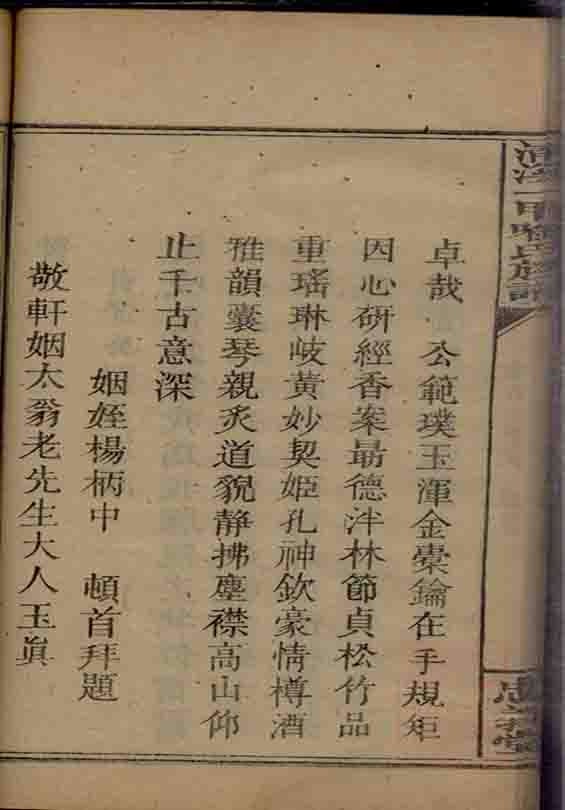 卓哉　公範璞玉渾金橐鑰在手規矩
因心研經香案勗德泮林節貞松竹品
重瑤琳岐黃妙契姬孔神欽豪情樽酒
雅韻囊琴親炙道貌靜拂塵襟高山仰
止千古意深
姻姪楊柄中　頓首拜題
敬軒姻太翁老先生大人玉真